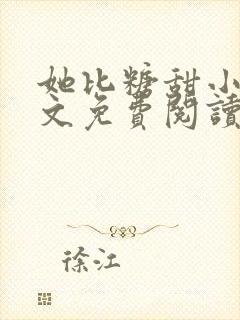 她比糖甜小
文免費閱讀
徐江